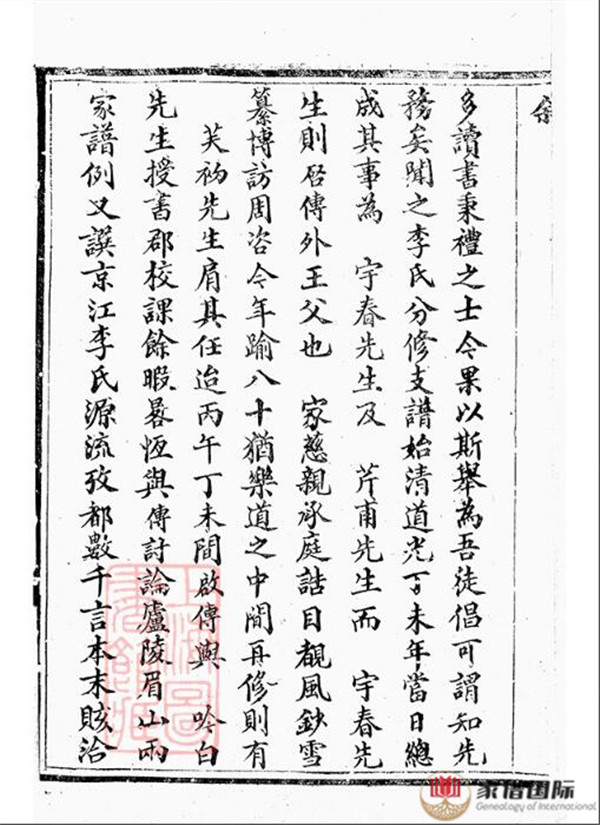 多讀書秉禮之士今果以斯舉為吾徒倡可謂知先
務矣聞之李氏分修支譜始清道光丁未年當日總
成其事為 宇春先生及 芹甫先生而 宇春先
生則启傳外王父也 家慈親承庭誥目覩風鈔雪
纂博訪周咨今年踰八十猶樂道之中間再修則有
芙初先生肩其任迨丙午丁未間啟傳與 吟白
先生授書郡校課餘暇晷恆與傳討論廬陵眉山兩
家譜例又譔京江李氏源流攷都數千言本末賅洽
上海圖書館藏
家谱国际
Genealogy of International